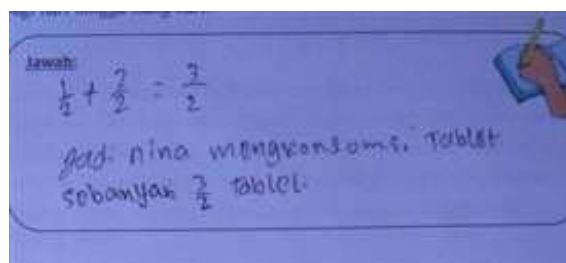 Jawab:
1/2 + 2/2 = 3/2
Jadi nina mengkonsomsi Tablet
sebanyak 3/2 tablet.